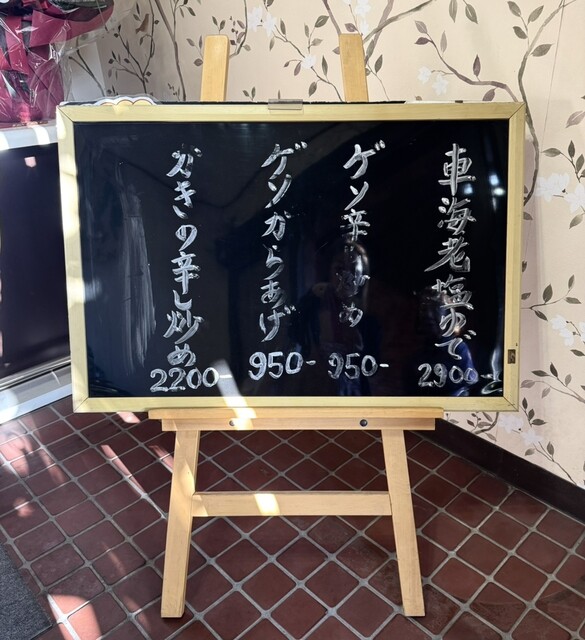 車海老塩ゆで 2900-
ゲソ辛し炒め 950-
ゲソからあげ 950-
かきの辛し炒め 2200-